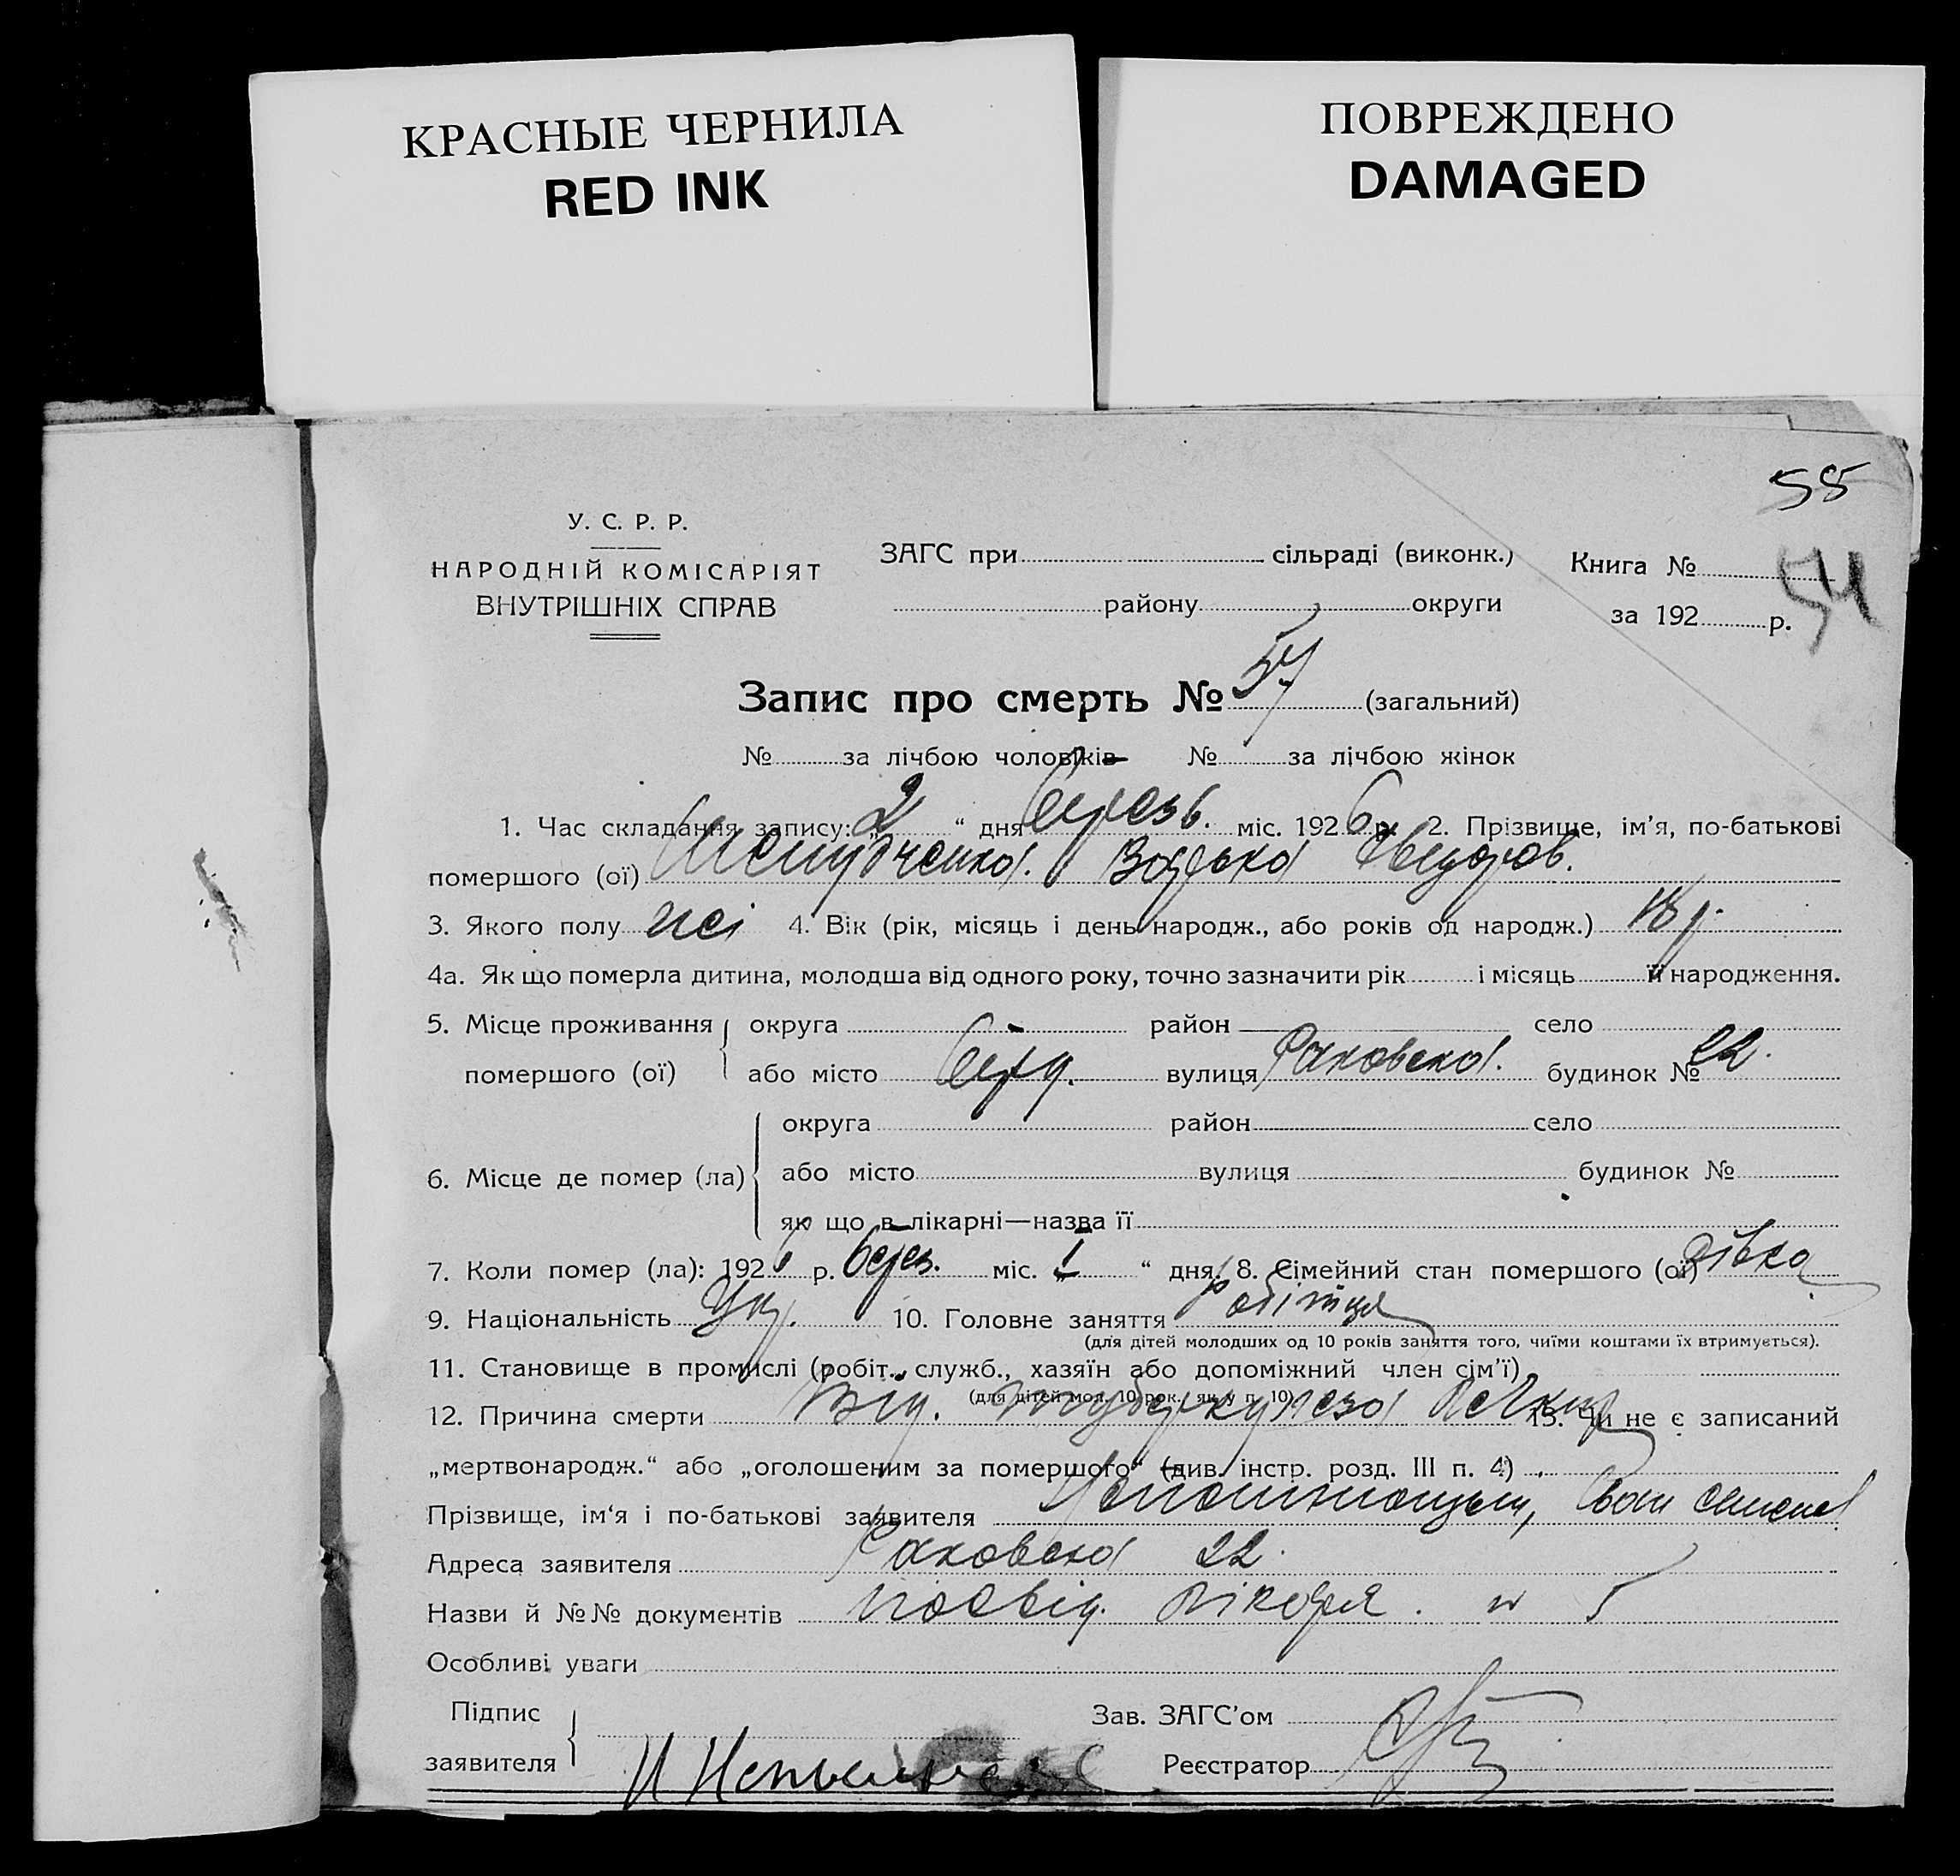 КРАСНЫЕ ЧЕРНИЛА
RED INK
ПОВРЕЖДЕНО
DAMAGED
58
У. С. Р. Р.
НАРОДНІЙ КОМІСАРІЯТ
ВНУТРІШНІХ СПРАВ
ЗАГС при сільраді (виконк.)
району округи
Книга №
за 192 р.
54
Запис про смерть № 57 (загальний)
№ за лічбою чоловіків № за лічбою жінок
1. Час складання запису: „2“ дня березня міс. 1926 р. 2. Прізвище, ім’я, по-батькові
помершого (ої)
3. Якого полу жі 4. Вік (рік, місяць і день народж., або років од народж.) 18 р.
4а. Як що померла дитина, молодша від одного року, точно зазначити рік і місяць її народження.
5. Місце проживання округа район село
помершого (ої) або місто Берд. вулиця Раковского будинок № 22.
округа район село
6. Місце де помер (ла) або місто вулиця будинок №
як що в лікарні—назва її
7. Коли помер (ла): 1926 р. берез. міс. „1“ дня. 8. Сімейний стан помершого (ої) дівка
9. Національність Укр. 10. Головне заняття робітця
(для дітей молодших од 10 років заняття того, чиїми коштами їх втримується).
11. Становище в промислі (робіт., служб., хазяїн або допоміжний член сім’ї)
(для дітей мол. 10 рок., як у п. 10)
12. Причина смерти Від. туберкульоза легких 13. Чи не є записаний
„мертвонародж.“ або „оголошеним за помершого“ (див. інстр. розд. III п. 4)
Прізвище, ім‘я і по-батькові заявителя Іван
Адреса заявителя Раковского 22.
Назви й №№ документів посвід. лікаря. № 5
Особливі уваги
Підпис
заявителя
Зав. ЗАГС’ом
Реєстратор